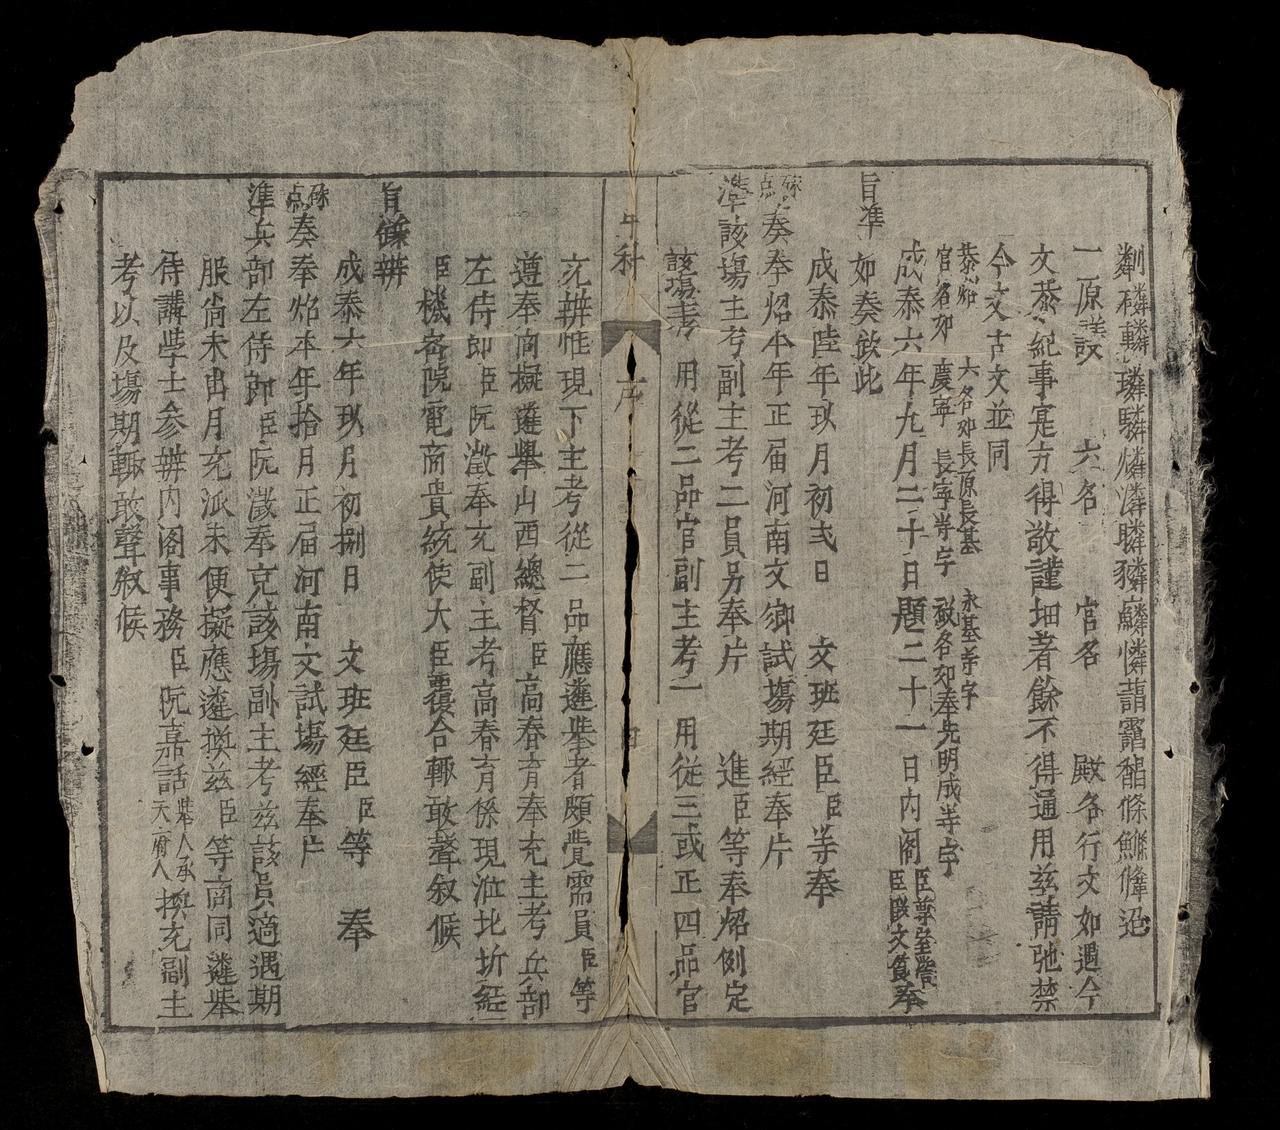 一原議 六名 官名 殿各行文如遇今
文恭紀事寔方得敬謹抽著餘不得通用茲請弛禁
今文古文並同
恭炤 六名如長原長基 永基等字
官名如 慶寧 長寧等字 殿各如奉先明成等字
成泰六年九月二十日題二十一日內閣臣尊室 臣段文質奉
旨準
如奏欽此
成泰陸年玖月初弍日 文班廷臣臣等奉
硃點奏奉炤本年正届河南文鄉試塲期經奉片
準該塲主考副主考二員另奉片 進臣等奉炤例定
該塲主考一用從二品官副主考一用從三或正四品官
午科 序
充辨惟現下主考從二品應遴舉者頗覺需員臣等
遵奉商擬遴舉山西總督臣高春育奉充主考兵部
左侍郎臣阮澂奉充副主考高春育係現涖北圻經
臣機密院電商貴統使大臣覆合輙敢聲叙候
旨發辨
成泰六年玖月初捌日 文班廷臣臣等 奉
硃點奏奉炤本年拾月正届河南文試塲經奉片
準兵部左侍郎臣阮澂奉充該塲副主考茲該員適遇期
服尙未出月充派未便擬應遴換茲臣等商同遴舉
侍講學士參辨內閣事務臣阮嘉話舉人承天府人換充副主
考以及塲期輙敢聲叙候